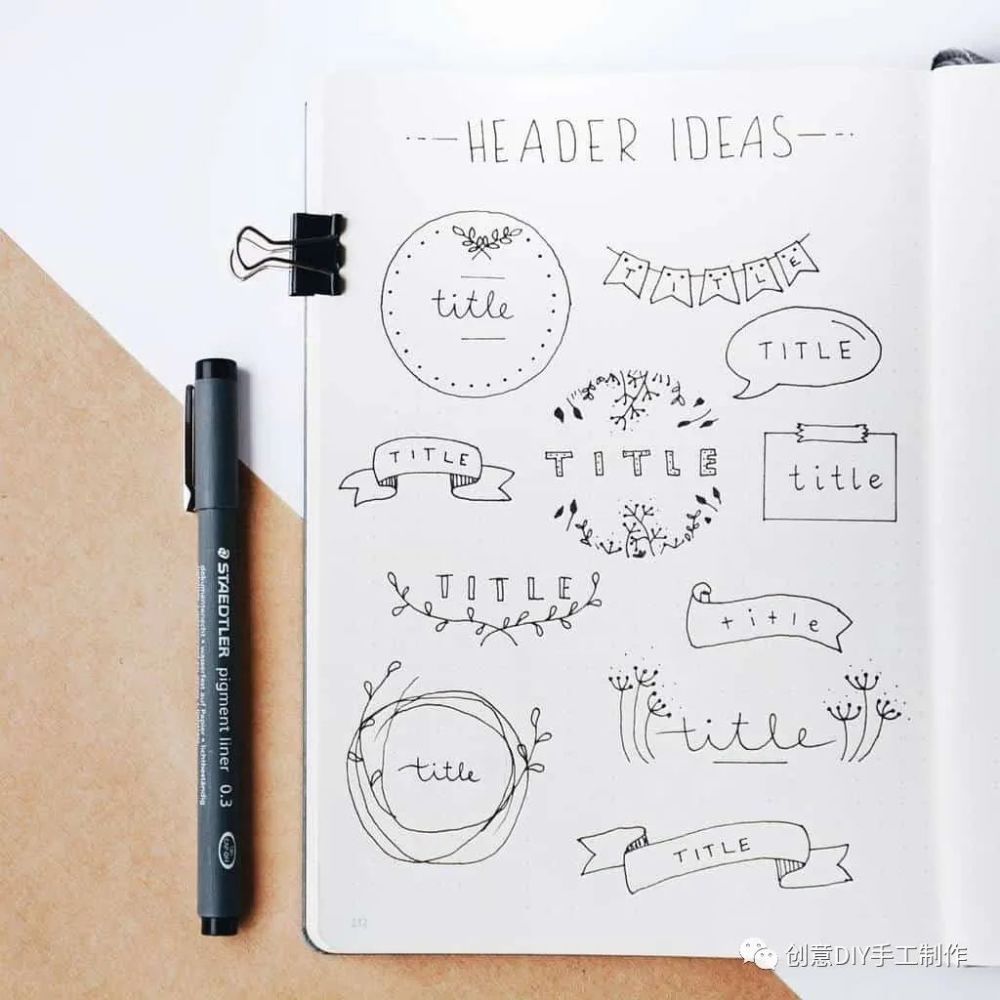 HEADER IDEAS
title
TITLE
TITLE
TITLE
TITLE
title
TITLE
title
title
title
TITLE
STAEDTLER pigment liner 0.3
dokumentenecht • wasserfest auf Papier • lichtbeständig
创意DIY手工制作